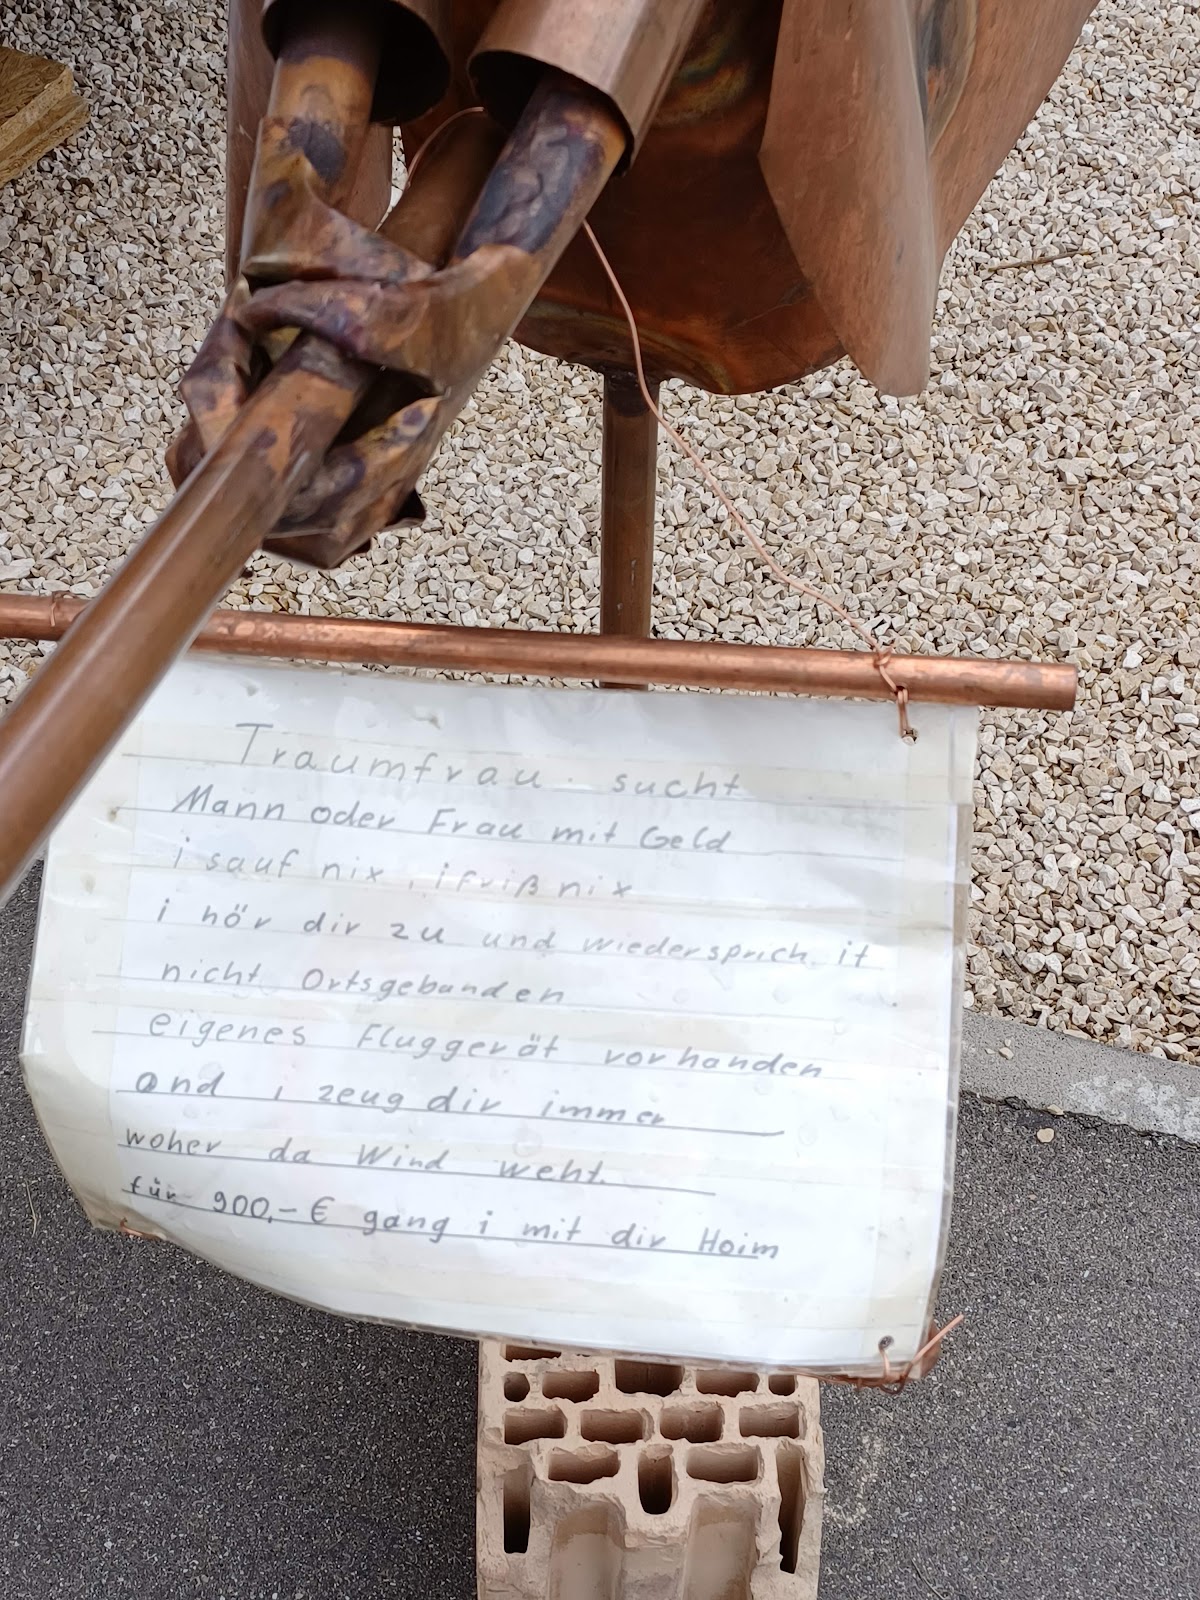 Traumfrau sucht
Mann oder Frau mit Geld
i sauf nix, i friß nix
i hör dir zu und wiedersprich it
nicht Ortsgebunden
eigenes Fluggerät vorhanden
and i zeug dir immer
woher da Wind weht.
für 900,- € gang i mit dir Hoim